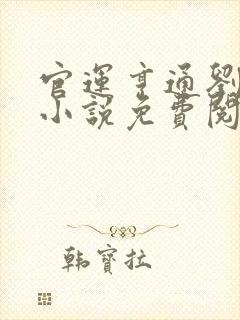 官運亨通劉
小說免費閱
韓寶拉